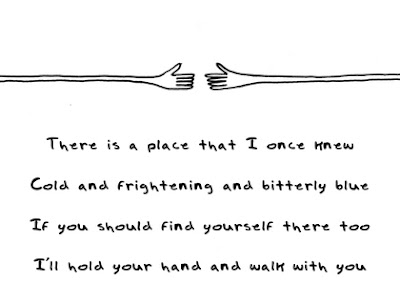 There is a place that I once knew
Cold and frightening and bitterly blue
If you should find yourself there too
I'll hold your hand and walk with you